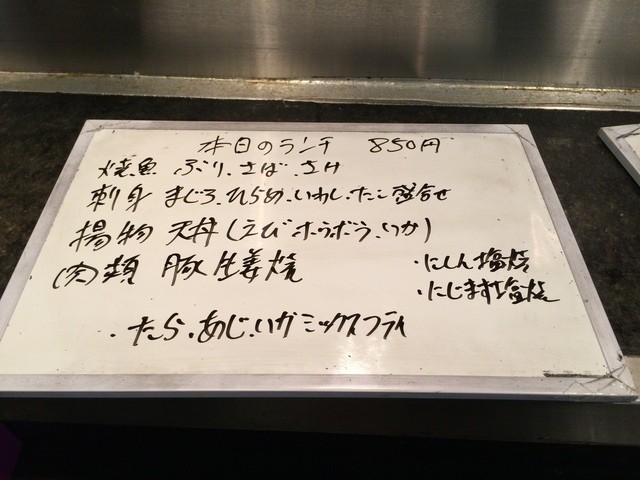 本日のランチ 850円
焼魚 ぶり、さば、さけ
刺身 まぐろ、ひらめ、いわし、たこ盛合せ
揚物 天丼(えび ホウボウ、いか)
肉類 豚生姜焼
・にしん塩焼
・にじます塩焼
・たら、あじ、いかミックスフライ